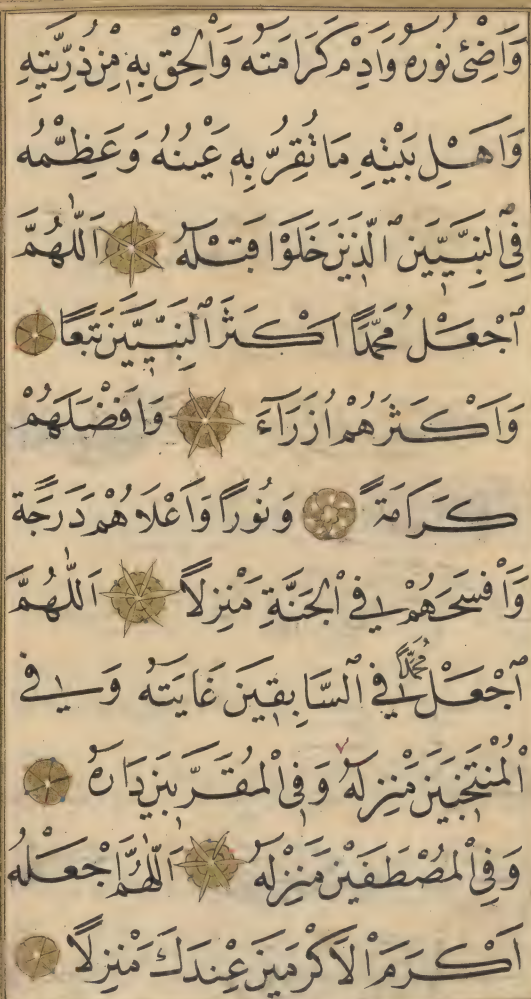 وَاَضِئْ نُورَهُ وَاَدِمْ كَرَامَتَهُ وَاَلْحِقْ بِهِ مِنْ ذُرِّيَّتِهِ
وَاَهْلِ بَيْتِهِ مَا تُقِرُّ بِهِ عَيْنُهُ وَعَظِّمْهُ
فِي النَّبِيّٖينَ الَّذِينَ خَلَوْا قَبْلَهُ اَللّٰهُمَّ
اجْعَلْ مُحَمَّدًا اَكْثَرَ النَّبِيّٖينَ تَبَعًا
وَاَكْثَرَهُمْ اُزَرَآءَ وَاَفْضَلَهُمْ
كَرَامَةً وَنُورًا وَاَعْلَاهُمْ دَرَجَةً
وَاَفْسَحَهُمْ فِي الْجَنَّةِ مَنْزِلًا اَللّٰهُمَّ
اجْعَلْ مُحَمَّدًا فِي السَّابِقِينَ غَايَتَهُ وَفِي
الْمُنْتَجَبِينَ مَنْزِلَهُ وَفِي الْمُقَرَّبِينَ دَارَهُ
وَفِي الْمُصْطَفَيْنَ مَنْزِلَهُ اَللّٰهُمَّ اجْعَلْهُ
اَكْرَمَ الْاَكْرَمِينَ عِنْدَكَ مَنْزِلًا